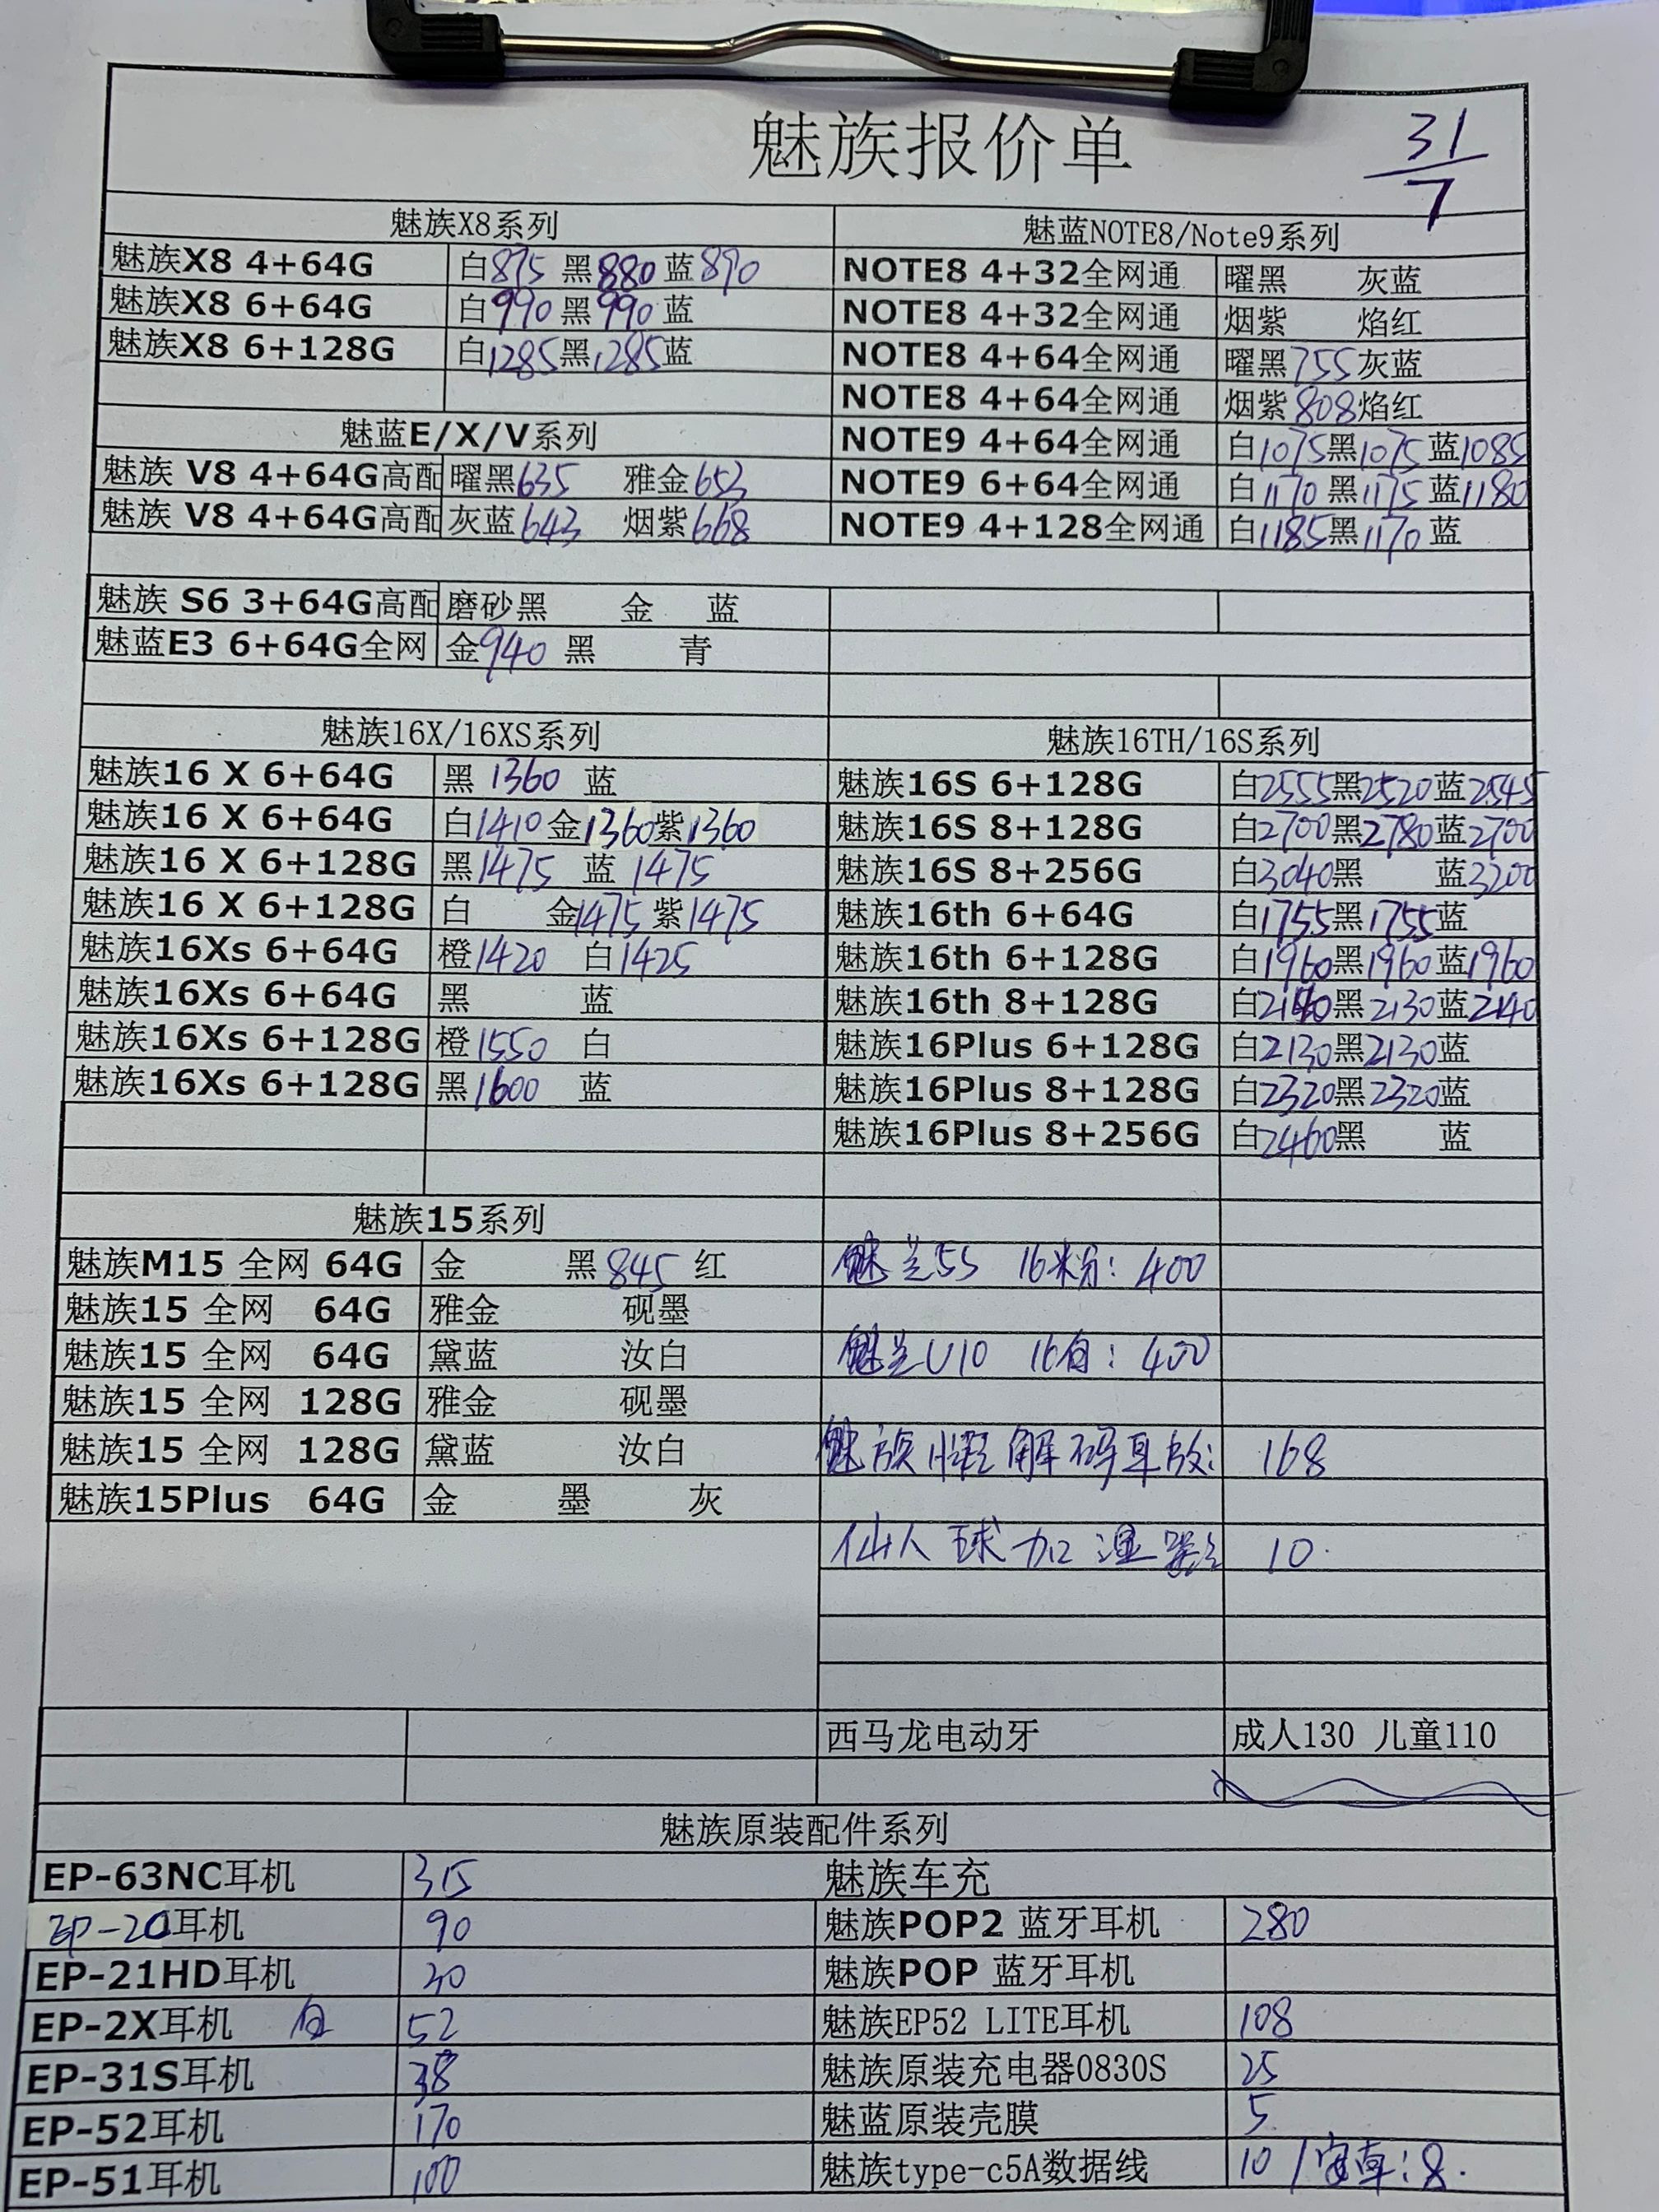 魅族报价单
31/7
魅族X8系列
魅族X8 4+64G 白875 黑880 蓝890
魅族X8 6+64G 白990 黑990 蓝
魅族X8 6+128G 白1285 黑1285 蓝
魅蓝E/X/V系列
魅族 V8 4+64G高配 曜黑635 雅金653
魅族 V8 4+64G高配 灰蓝643 烟紫668
魅族 S6 3+64G高配 磨砂黑 金 蓝
魅蓝E3 6+64G全网 金940 黑 青
魅蓝NOTE8/Note9系列
NOTE8 4+32全网通 曜黑 灰蓝
NOTE8 4+32全网通 烟紫 焰红
NOTE8 4+64全网通 曜黑755 灰蓝
NOTE8 4+64全网通 烟紫808 焰红
NOTE9 4+64全网通 白1075 黑1075 蓝1085
NOTE9 6+64全网通 白1170 黑1175 蓝1180
NOTE9 4+128全网通 白1185 黑1170 蓝
魅族16X/16XS系列
魅族16 X 6+64G 黑 1360 蓝
魅族16 X 6+64G 白1410 金1360 紫1360
魅族16 X 6+128G 黑1475 蓝 1475
魅族16 X 6+128G 白 金1475 紫1475
魅族16Xs 6+64G 橙1420 白1425
魅族16Xs 6+64G 黑 蓝
魅族16Xs 6+128G 橙1550 白
魅族16Xs 6+128G 黑1600 蓝
魅族16TH/16S系列
魅族16S 6+128G 白2555 黑2520 蓝2545
魅族16S 8+128G 白2700 黑2780 蓝2700
魅族16S 8+256G 白3040 黑 蓝3200
魅族16th 6+64G 白1755 黑1755 蓝
魅族16th 6+128G 白1960 黑1960 蓝1960
魅族16th 8+128G 白2140 黑2130 蓝2140
魅族16Plus 6+128G 白2130 黑2130 蓝
魅族16Plus 8+128G 白2320 黑2320 蓝
魅族16Plus 8+256G 白2460 黑 蓝
魅族15系列
魅族M15 全网 64G 金 黑845 红
魅族15 全网 64G 雅金 砚墨
魅族15 全网 64G 黛蓝 汝白
魅族15 全网 128G 雅金 砚墨
魅族15 全网 128G 黛蓝 汝白
魅族15Plus 64G 金 墨 灰
魅兰5S 16粉: 400
魅兰U10 16白: 400
魅族 解码耳放: 168
仙人球加湿器: 10.
西马龙电动牙 成人130 儿童110
魅族原装配件系列
EP-63NC耳机 315 魅族车充
EP-20耳机 90 魅族POP2 蓝牙耳机 280
EP-21HD耳机 30 魅族POP 蓝牙耳机
EP-2X耳机 白 52 魅族EP52 LITE耳机 108
EP-31S耳机 38 魅族原装充电器0830S 25
EP-52耳机 170 魅蓝原装壳膜 5
EP-51耳机 100 魅族type-c5A数据线 10 / 安卓: 8.